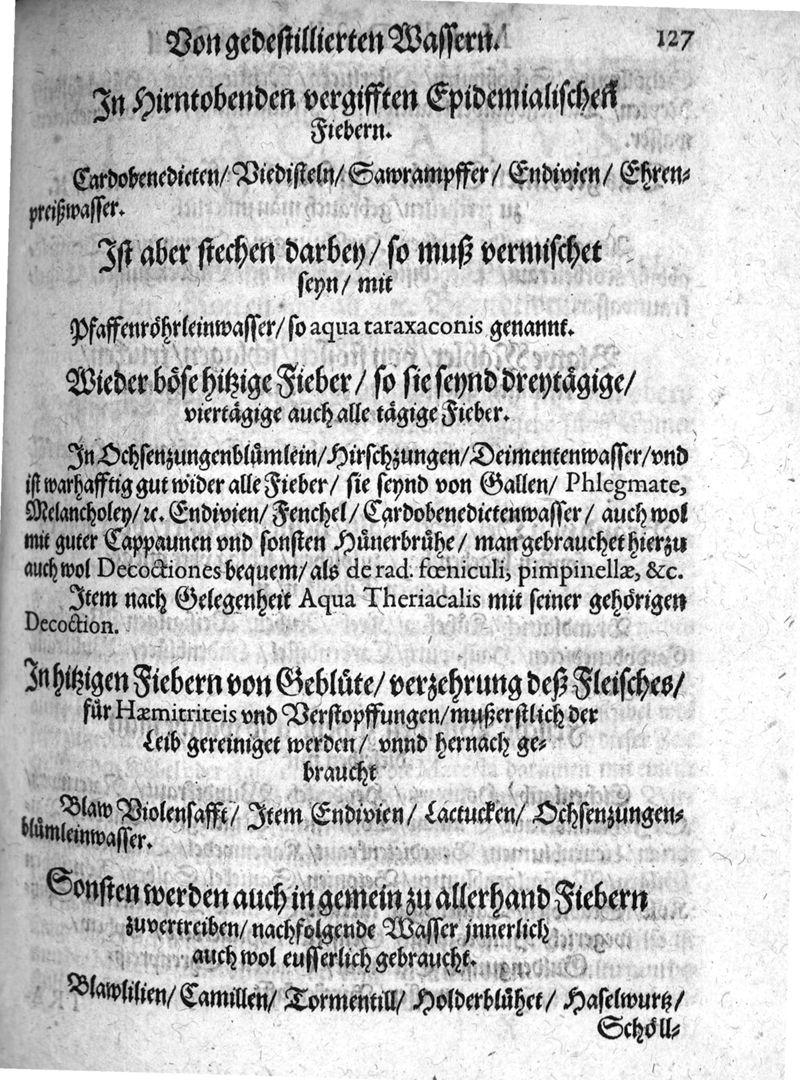 Von gedestillierten Wassern. 127
In Hirntobenden vergifften Epidemialischen
Fiebern.
Cardobenedicten/ Viedisteln/ Sawrampffer/ Endivien/ Ehren-
preißwasser.
Ist aber stechen darbey/ so muß vermischet
seyn/ mit
Pfaffenröhrleinwasser/ so aqua taraxaconis genannt.
Wieder böse hitzige Fieber/ so sie seynd dreytägige/
viertägige auch alle tägige Fieber.
In Ochsenzungenblümlein/ Hirschzungen/ Deimentenwasser/ vnd
ist warhafftig gut wider alle Fieber/ sie seynd von Gallen/ Phlegmate,
Melancholey/ ꝛc. Endivien/ Fenchel/ Cardobenedictenwasser/ auch wol
mit guter Cappaunen vnd sonsten Hünerbrühe/ man gebrauchet hierzu
auch wol Decoctiones bequem/ als de rad. fœniculi, pimpinellæ, &c.
Item nach Gelegenheit Aqua Theriacalis mit seiner gehörigen
Decoction.
In hitzigen Fiebern von Geblüte/ verzehrung deß Fleisches/
für Hæmitriteis vnd Verstopffungen/ muß erstlich der
Leib gereiniget werden/ vnnd hernach ge-
braucht
Blaw Violensafft/ Item Endivien/ Lactucken/ Ochsenzungen-
blümleinwasser.
Sonsten werden auch in gemein zu allerhand Fiebern
zuvertreiben/ nachfolgende Wasser jnnerlich
auch wol eusserlich gebraucht.
Blawlilien/ Camillen/ Tormentill/ Holderblühet/ Haselwurtz/
Schöll-